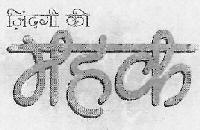 ज़िंदगी की
महक